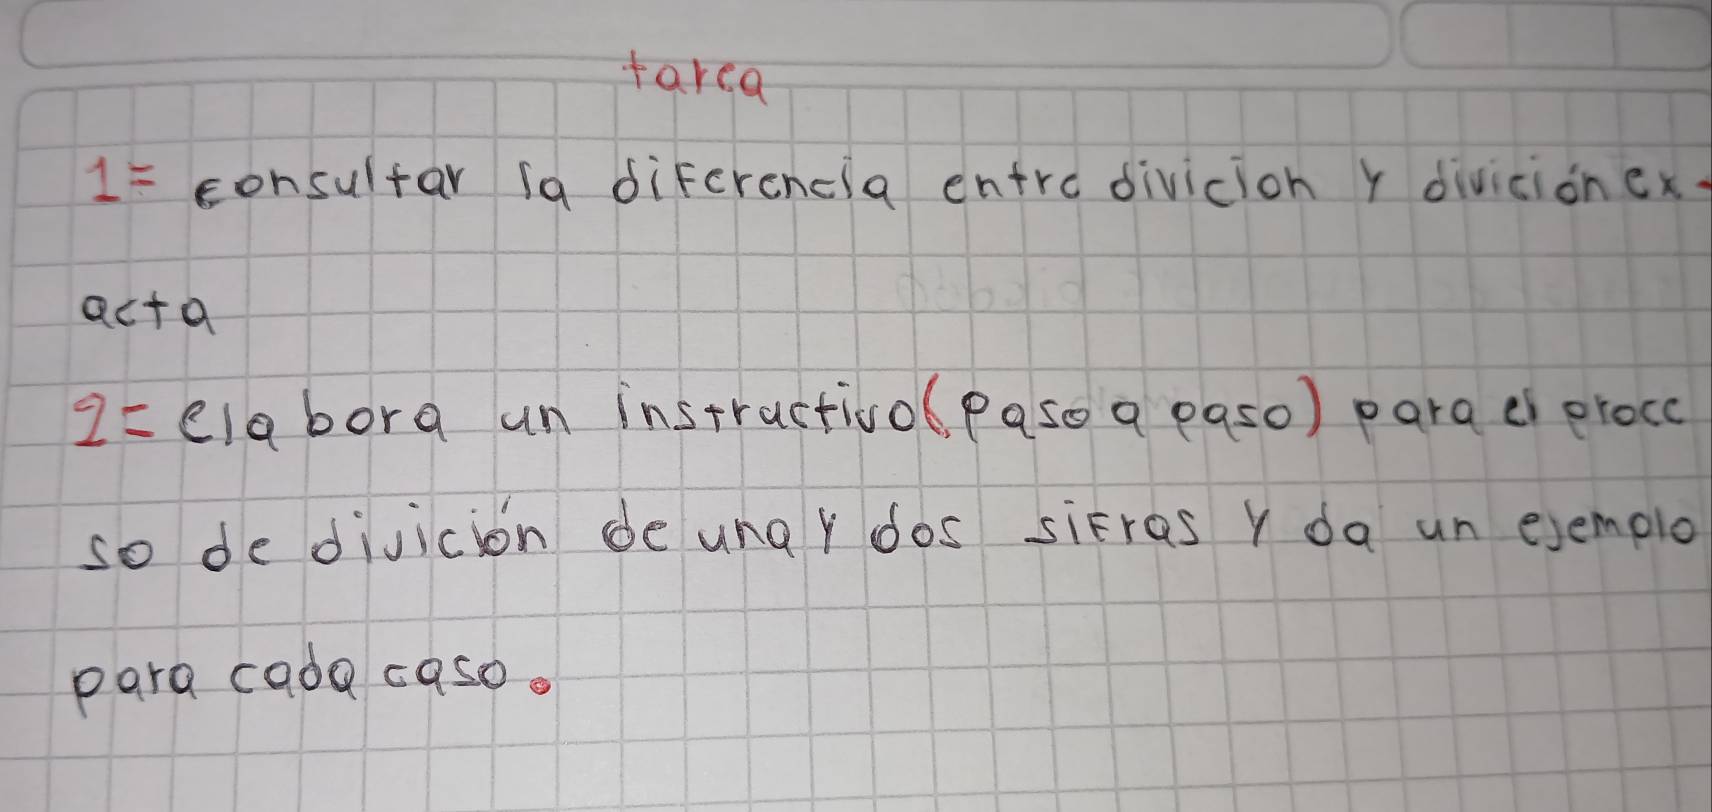 tarea
1= consultar la diferencia entre divicion y divición ex-
acta
2= elabora un instructivo (paso a paso) para el proce
so de divición de una y dos sifras y da un ejemplo
para cada caso.